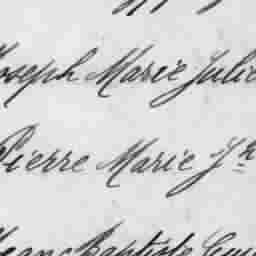 Joseph Marie Julie
Pierre Marie Jh
Jean Baptiste